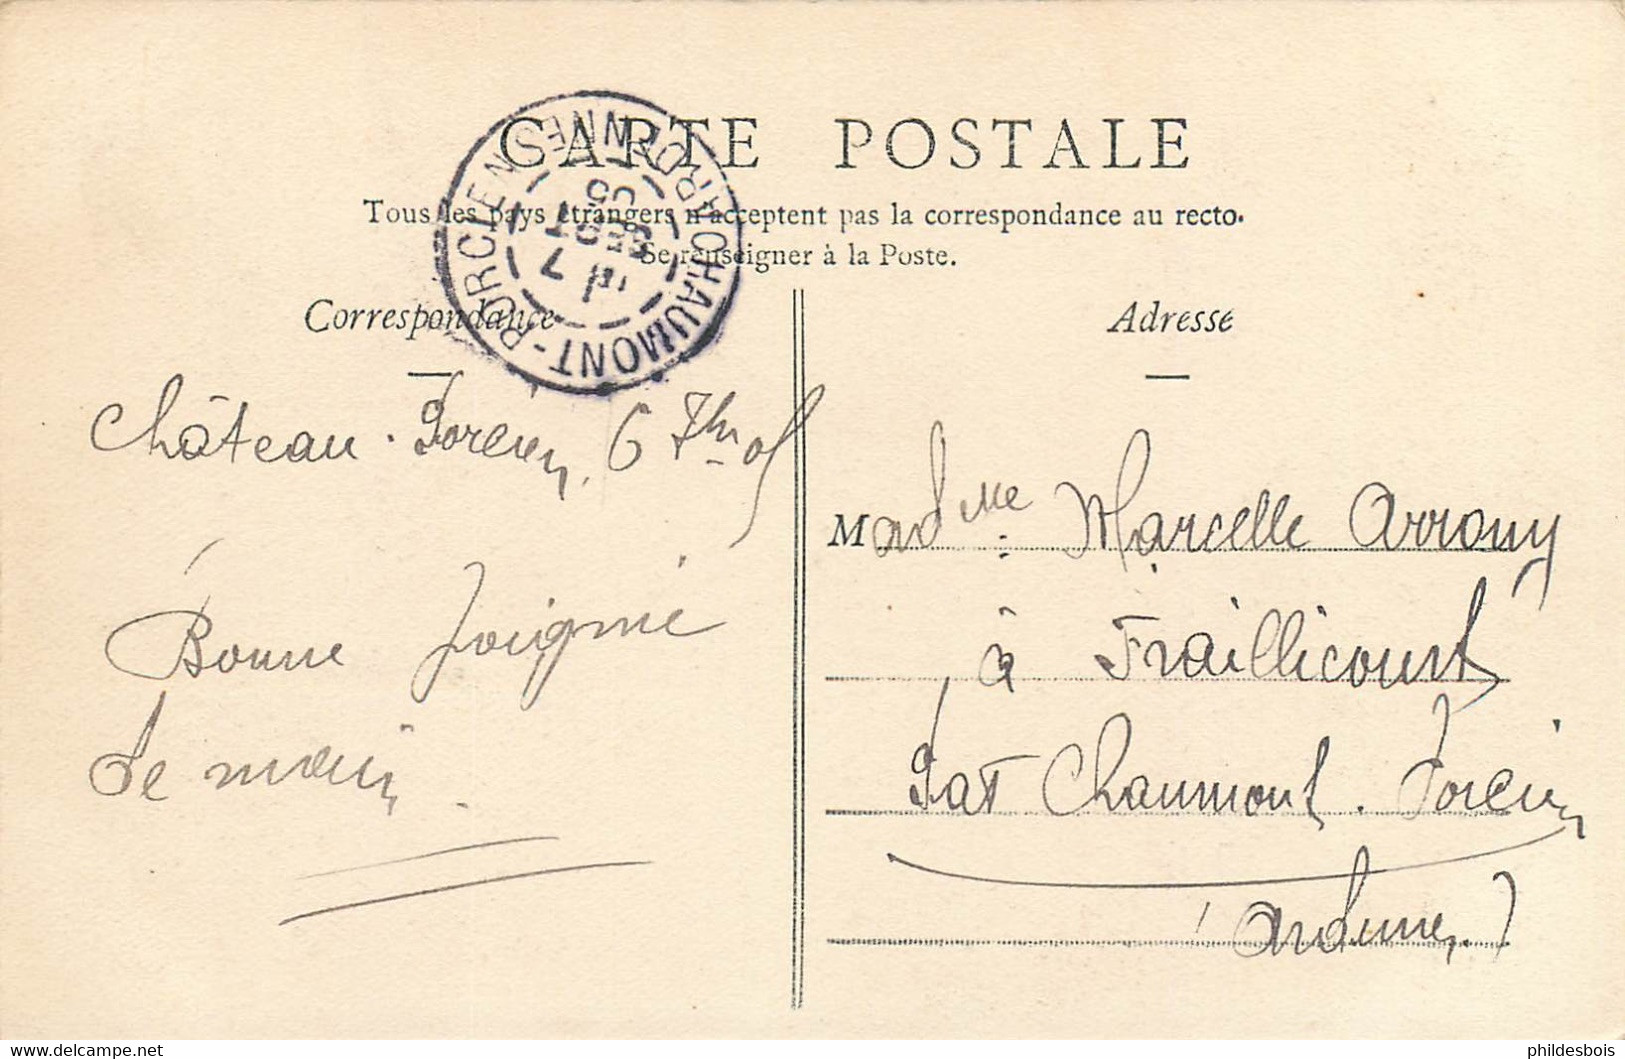 CARTE POSTALE
Tous les pays étrangers n'acceptent pas la correspondance au recto.
Se renseigner à la Poste.
CHAUMONT-PORCIEN
ARDENNES
7
SEPT
05
Correspondance
Château-Porcien, 6 7bre 05
Bonne poignée
de main.
Adresse
Madme Marcelle Arrouy
à Fraillicourt
par Chaumont-Porcien
(Ardennes.)
phildesbois